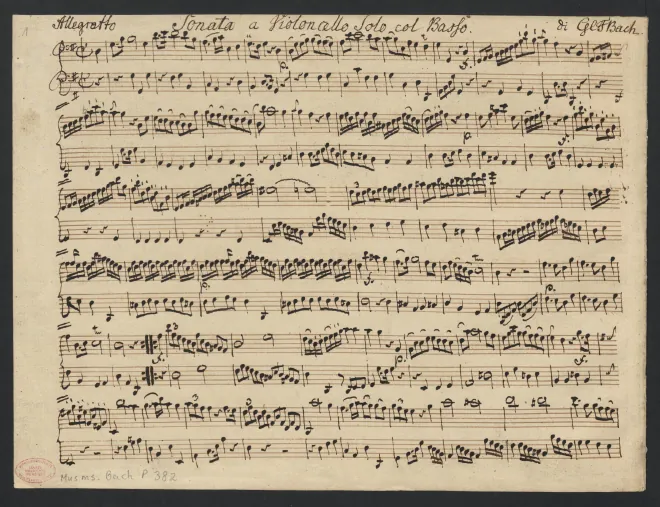 Allegretto Sonata a Violoncello Solo col Basso. di
Mus.ms. Bach P 382